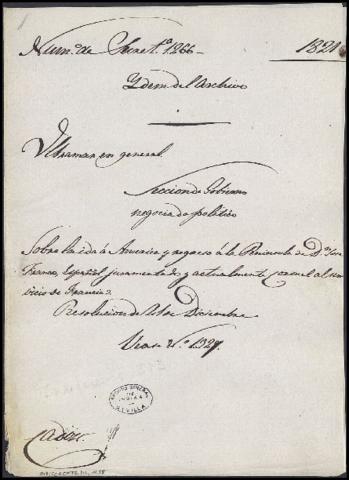 Num.º de Secret.ª 1266
1821
Ydem del Archivo
Ultramar en general
Seccion de Gobierno
negociado politico
Sobre la ida á America y regreso á la Peninsula de D.n José
Español, juramentado, y actualmente consul al ser
vicio de Francia.
Resolucion de 21 de Diciembre
Vease N.º 1327.
ARCHIVO GENERAL
DE
INDIAS
SEVILLA
Cadiz